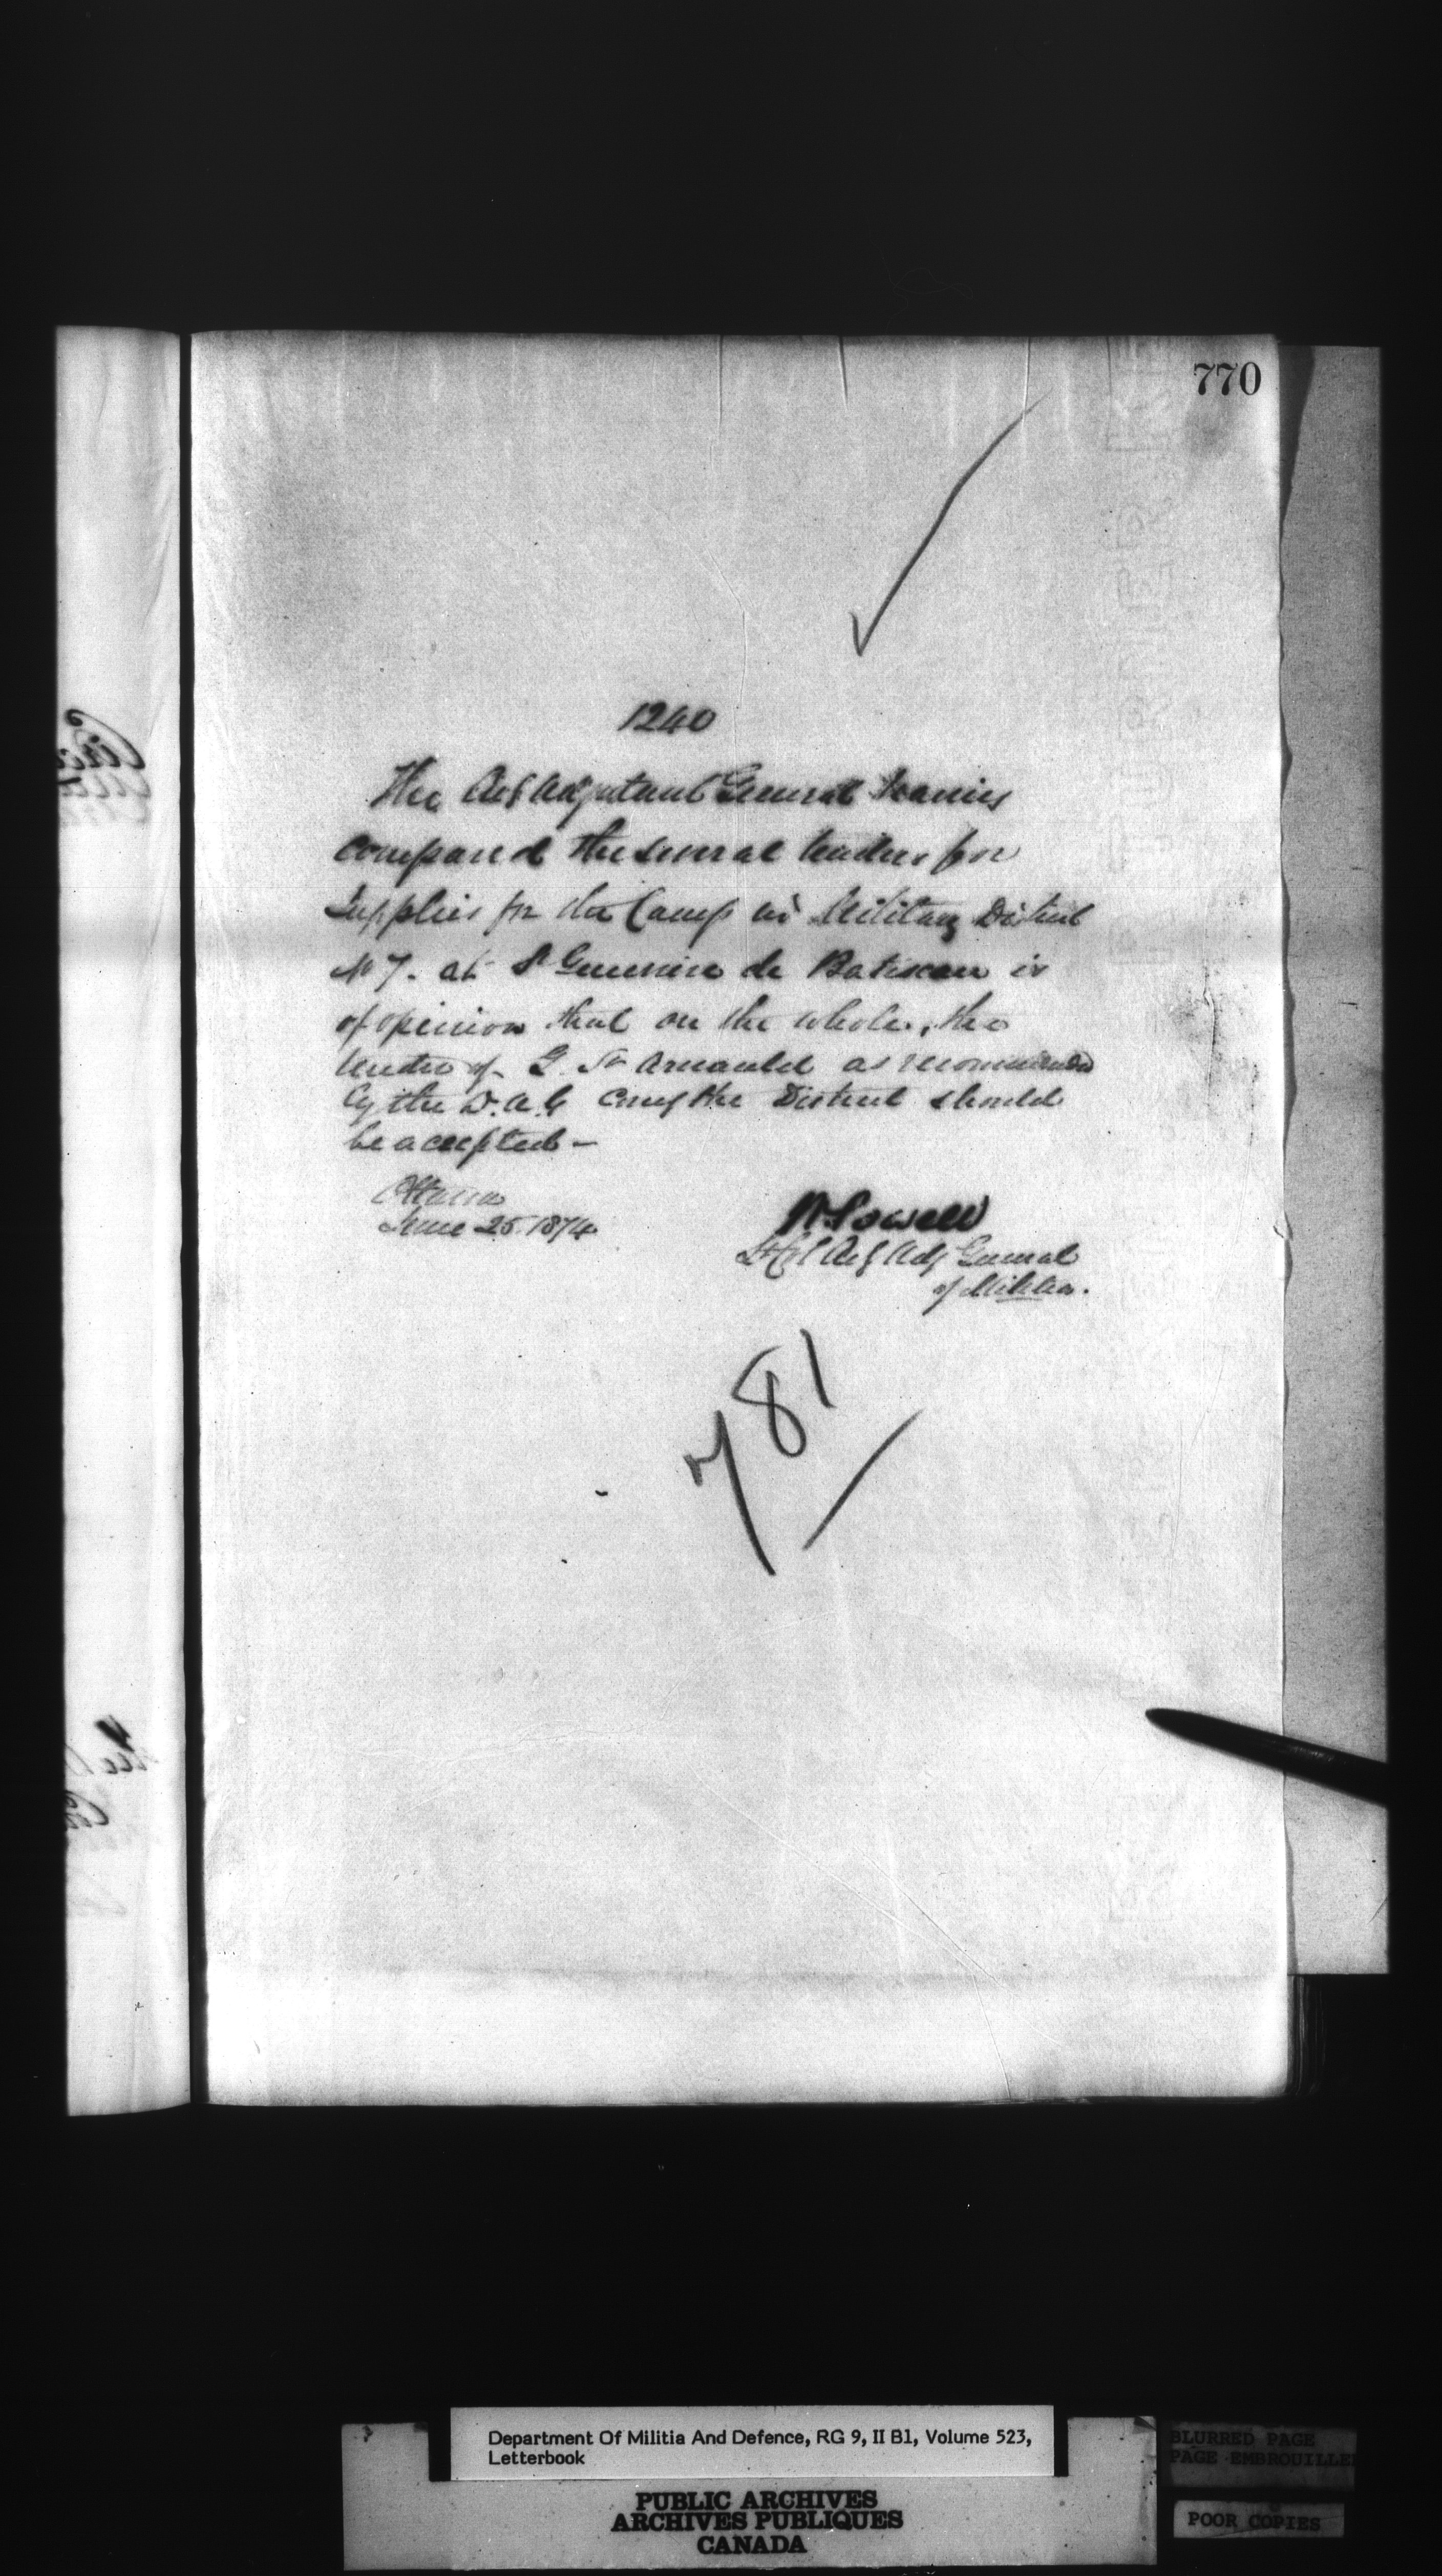 770
1240
The Actg Adjutant General having
compared the several tenders for
Supplies for the Camp in Military District
No 7. at St Genevieve de Batiscan is
of opinion that on the whole, the
tender of G. St Arnauld as recommended
by the D.A.G Comg the District should
be accepted —
Ottawa
June 25. 1874
W Powell
Lt Col Actg Adj General
of Militia.
781
Department Of Militia And Defence, RG 9, II B1, Volume 523,
Letterbook
PUBLIC ARCHIVES
ARCHIVES PUBLIQUES
CANADA
BLURRED PAGE
PAGE EMBROUILLE
POOR COPIES